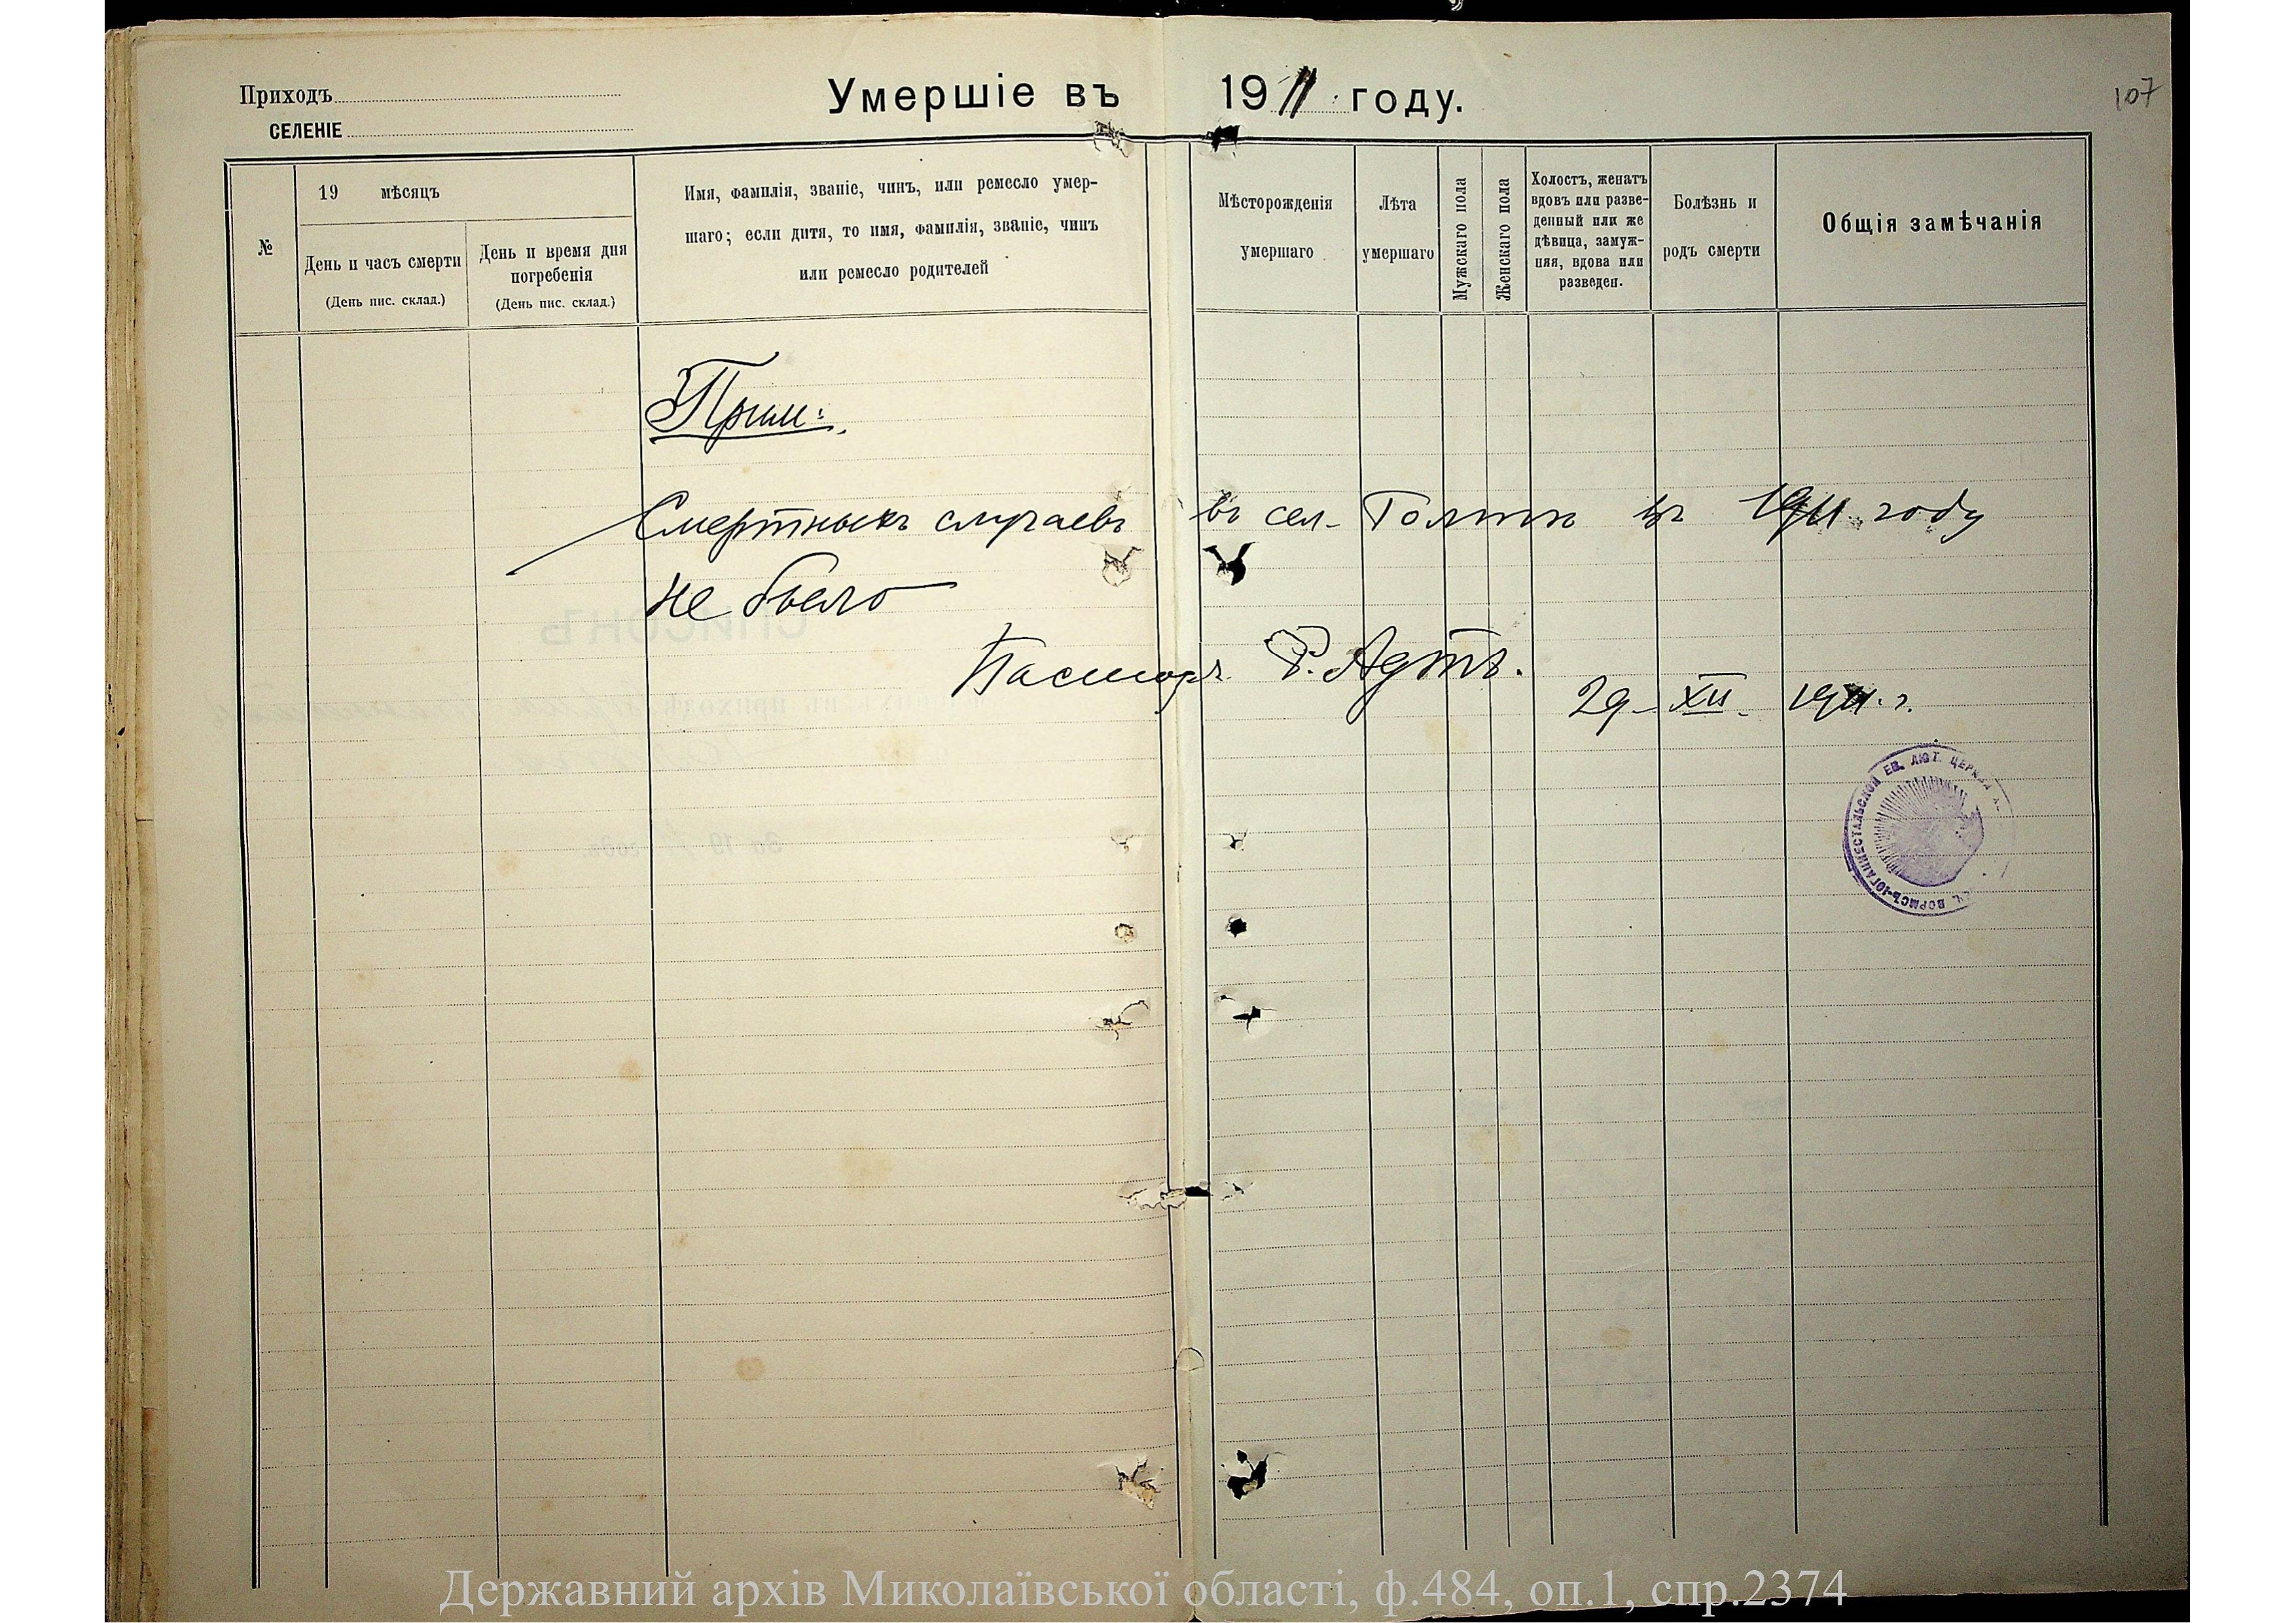 Приходъ
СЕЛЕНІЕ
Умершіе въ 1911 году.
107
№
19 мѣсяцъ
День и часъ смерти
(День пис. склад.)
День и время дня
погребенія
(День пис. склад.)
Имя, фамилія, званіе, чинъ, или ремесло умер-
шаго; если дитя, то имя, фамилія, званіе, чинъ
или ремесло родителей
Мѣсторожденія
умершаго
Лѣта
умершаго
Мужскаго пола
Женскаго пола
Холостъ, женатъ
вдовъ или разве-
денный или же
дѣвица, замуж-
няя, вдова или
разведен.
Болѣзнь и
родъ смерти
Общія замѣчанія
Прим:
Смертныхъ случаевъ въ сел. Голтѣ въ 1911 году
не было
Пасторъ
29-XII-1911 г.
ВОРМСЪ-ІОГАННЕСТАЛЬСКОЙ ЕВ. ЛЮТ. ЦЕРКВИ
СПИСОКЪ
За 19 годъ.
Державний архів Миколаївської області, ф.484, оп.1, спр.2374